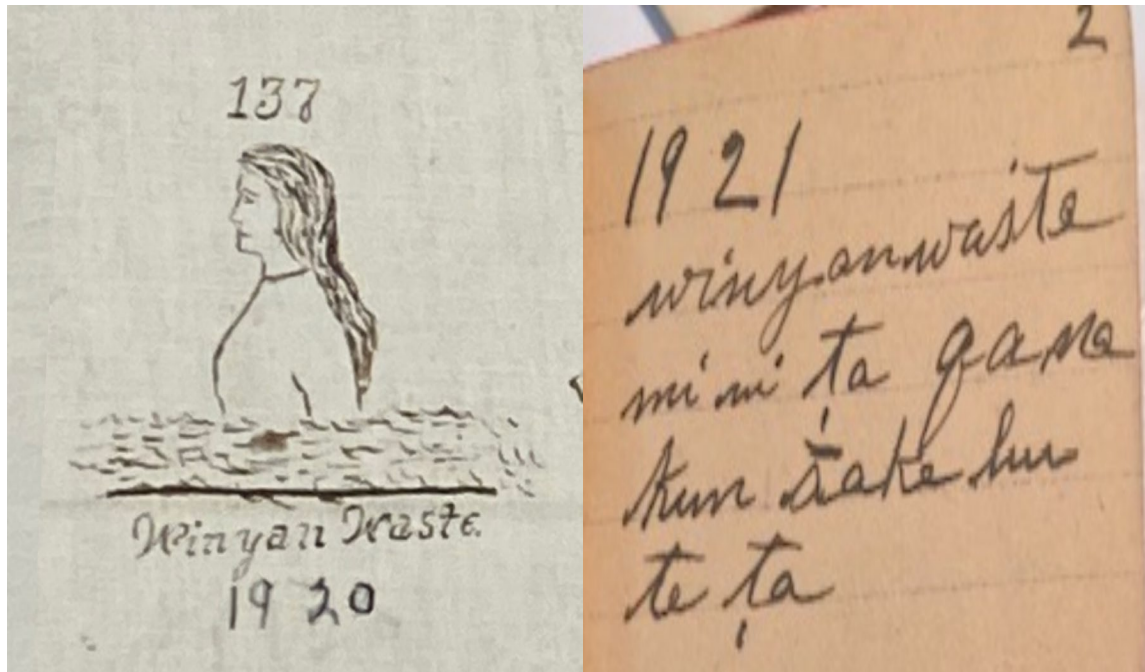 137
Winyan Waste.
1920
2
1921
winyanwaste
mini ṭa qa na
kun ṡakehu
te ṭa